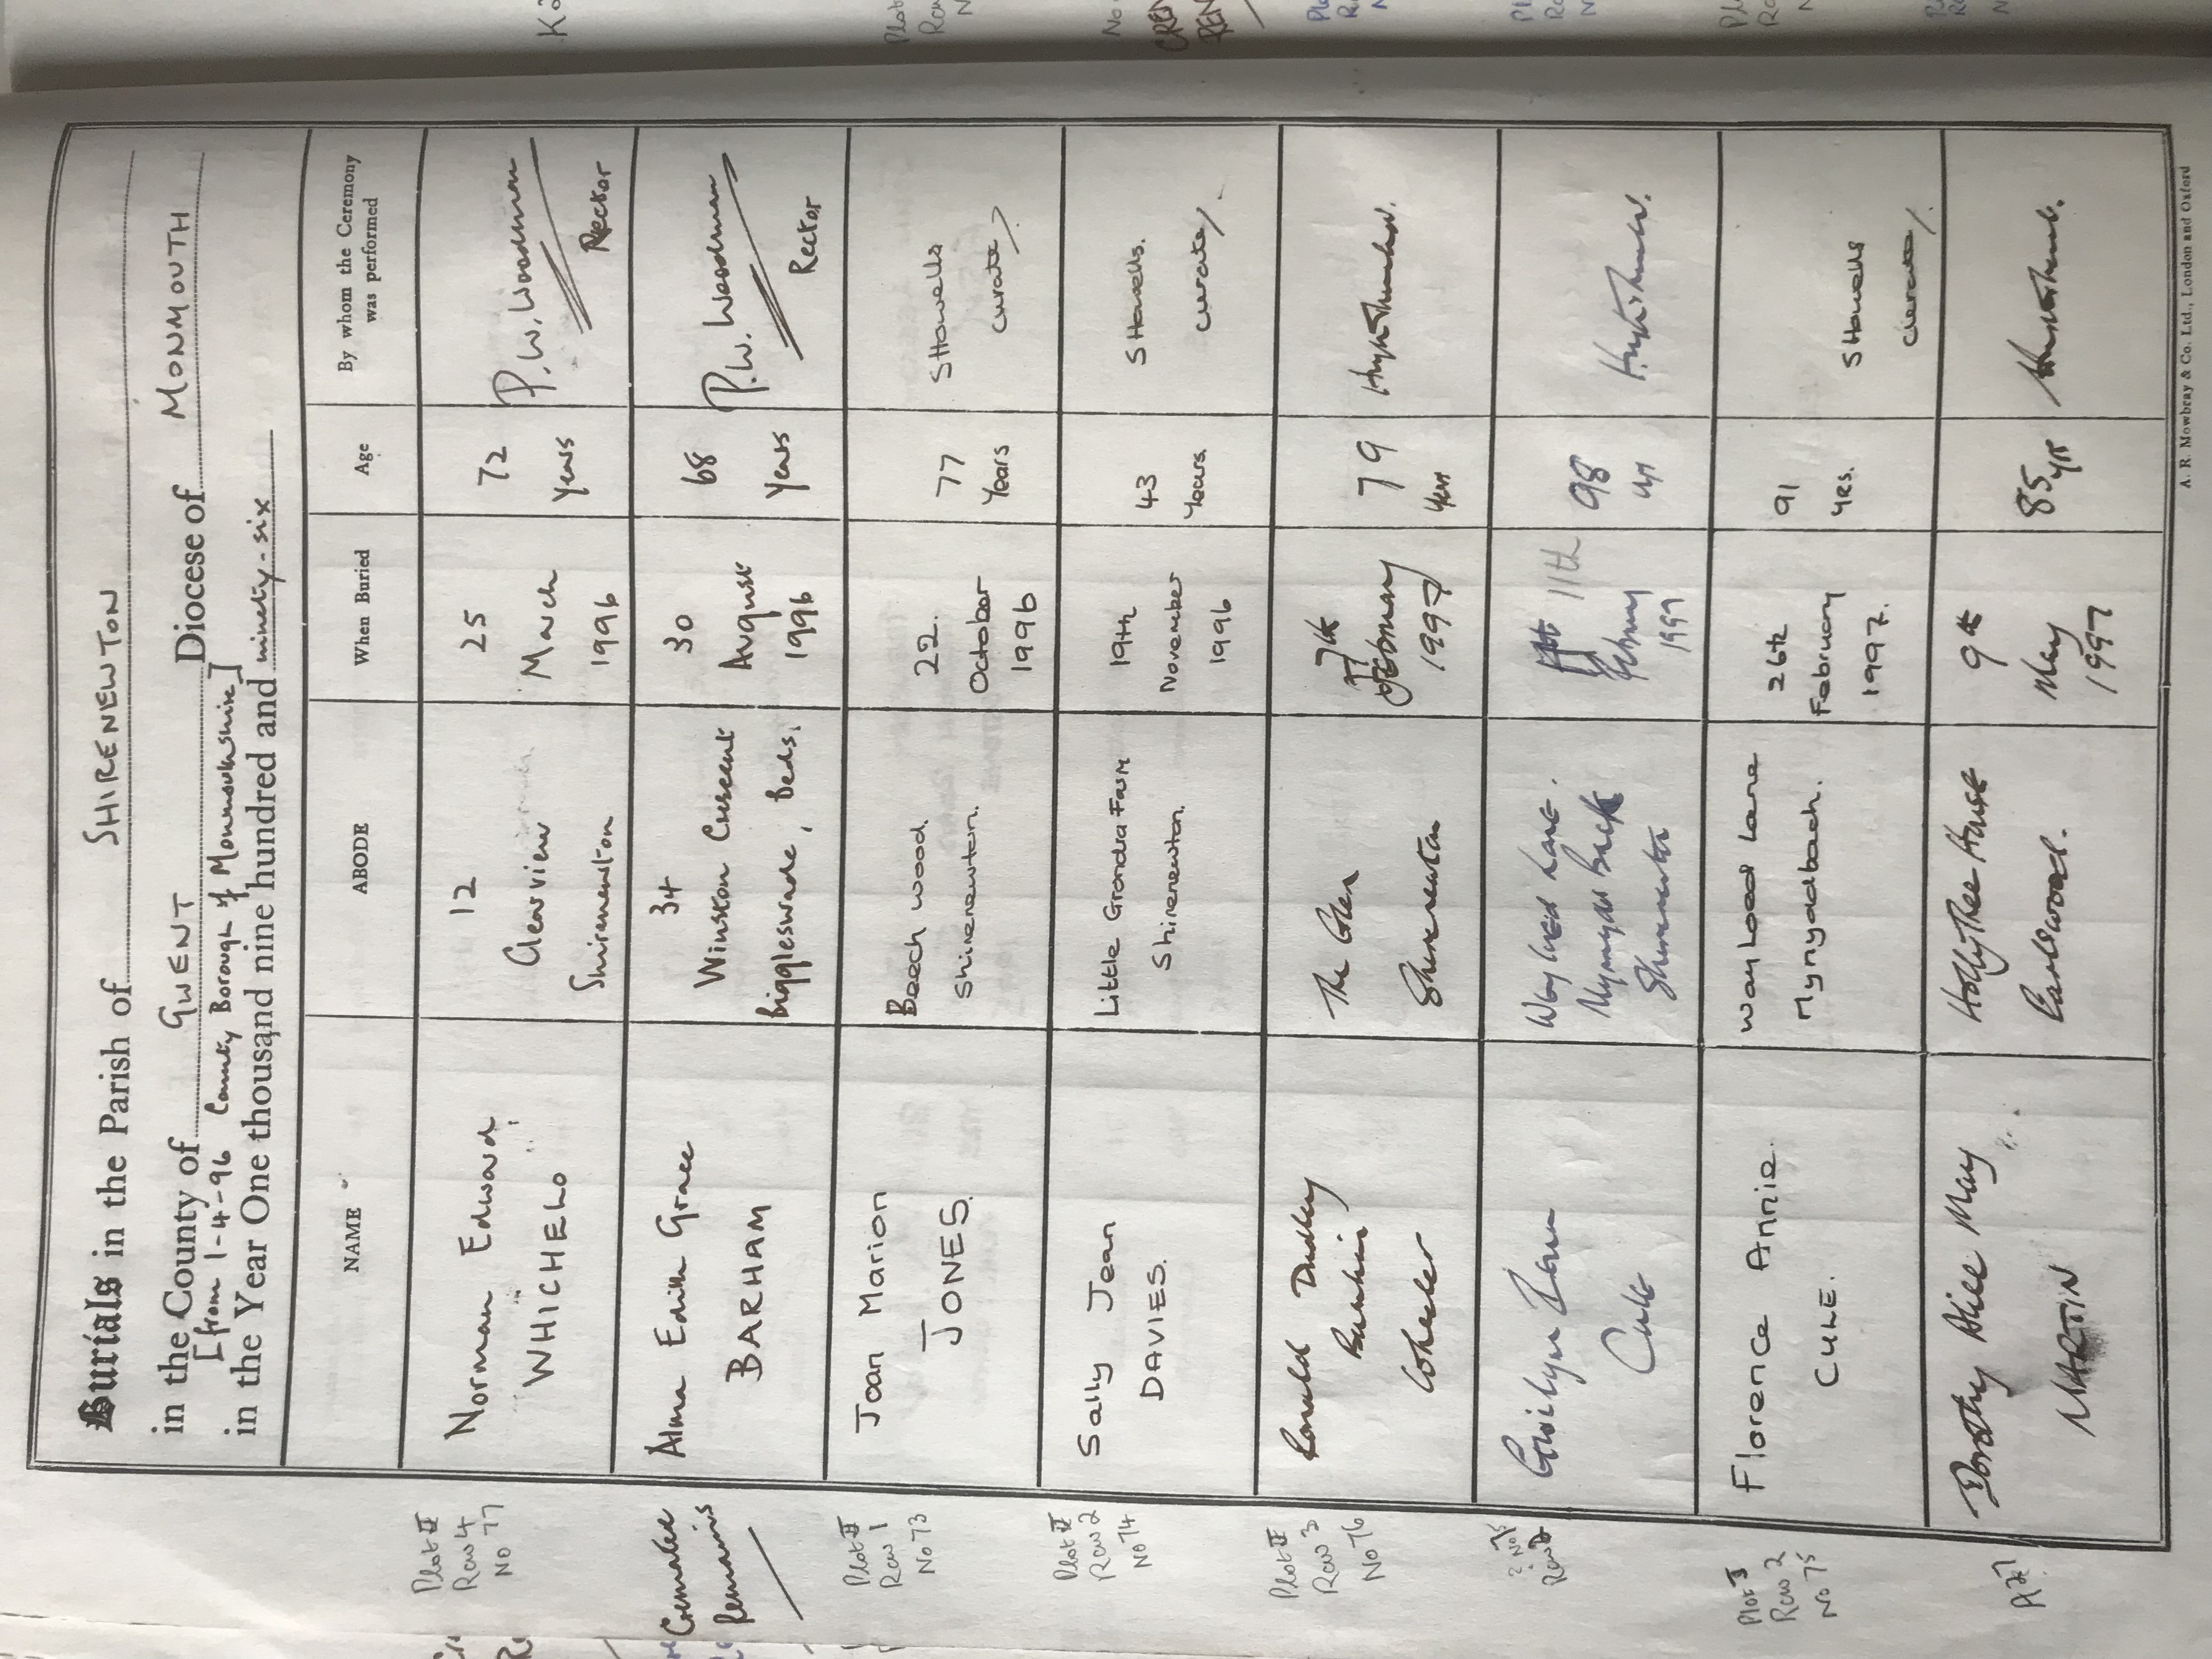 Burials in the Parish of SHIRENEWTON
in the County of GWENT Diocese of MONMOUTH
[from 1-4-96 County Borough of Monmouthshire]
in the Year One thousand nine hundred and ninety-six
NAME ABODE When Buried Age By whom the Ceremony was performed
Plot II
Row 4
No 77
Norman Edward
WHICHELO
12
Clearview
Shirenewton
25
March
1996
72
years
P.W. Woodman
Rector
Cremated
Remains
Alma Edith Grace
BARHAM
34
Winston Crescent
Biggleswade, Beds.
30
August
1996
68
years
P.W. Woodman
Rector
Plot II
Row 1
No 73
Joan Marion
JONES.
Beech wood.
Shirenewton.
22.
October
1996
77
Years
SHowells
curate
Plot II
Row 2
No 74
Sally Jean
DAVIES.
Little Grondra Farm
Shirenewton.
19th
November
1996
43
Years.
SHowells.
curate
Plot II
Row 3
No 76
Ronald Dudley
The Glen
Shirenewton
7th
February
1997
79
years
? No 75
Row 2
Gwilym
Wayload Lane.
Shirenewton
11th
February
1999
98
yrs
Plot II
Row 2
No 75
Florence Annie.
CULE.
Wayload Lane
Mynyddbach.
26th
February
1997.
91
yrs.
SHowells
curate
Dorothy Alice May
MARTIN
Holly Tree House
Earlswood.
9th
May
1997
85
yrs
A. R. Mowbray & Co. Ltd., London and Oxford